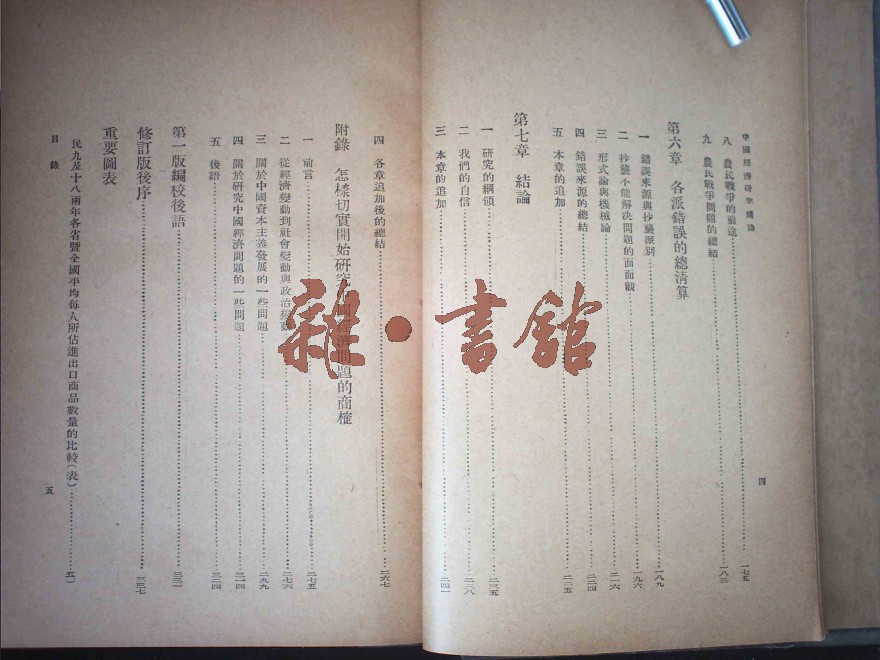 中國經濟研究緒論
八 農民戰爭的前途 一七五
九 農民戰爭問題的總結 一八三
第六章 各派錯誤的總清算
一 錯誤來源與抄襲派別 一八九
二 抄襲不能解決問題的面面觀 一九六
三 形式論與機械論 二一六
四 錯誤來源的總結 二二四
五 本章的追加 二二五
第七章 結論
一 研究的綱領 二三五
二 我們的自信 二三八
三 本章的追加 二四一
四
四 各章追加後的總結 二六七
附錄 怎樣切實開始研究中國經濟問題的商榷
一 前言 二七五
二 從經濟變動到社會變動與政治變動 二七六
三 關於中國資本主義發展的一些問題 二九九
四 關於研究中國經濟問題的一些問題 三一四
五 後語 三二四
第一版編校後語 三三一
修訂版後序 三三七
重要圖表
民九及十八兩年各省暨全國平均每人所佔進出口商品數量的比較(表) 五一
目錄
五
雜·書館